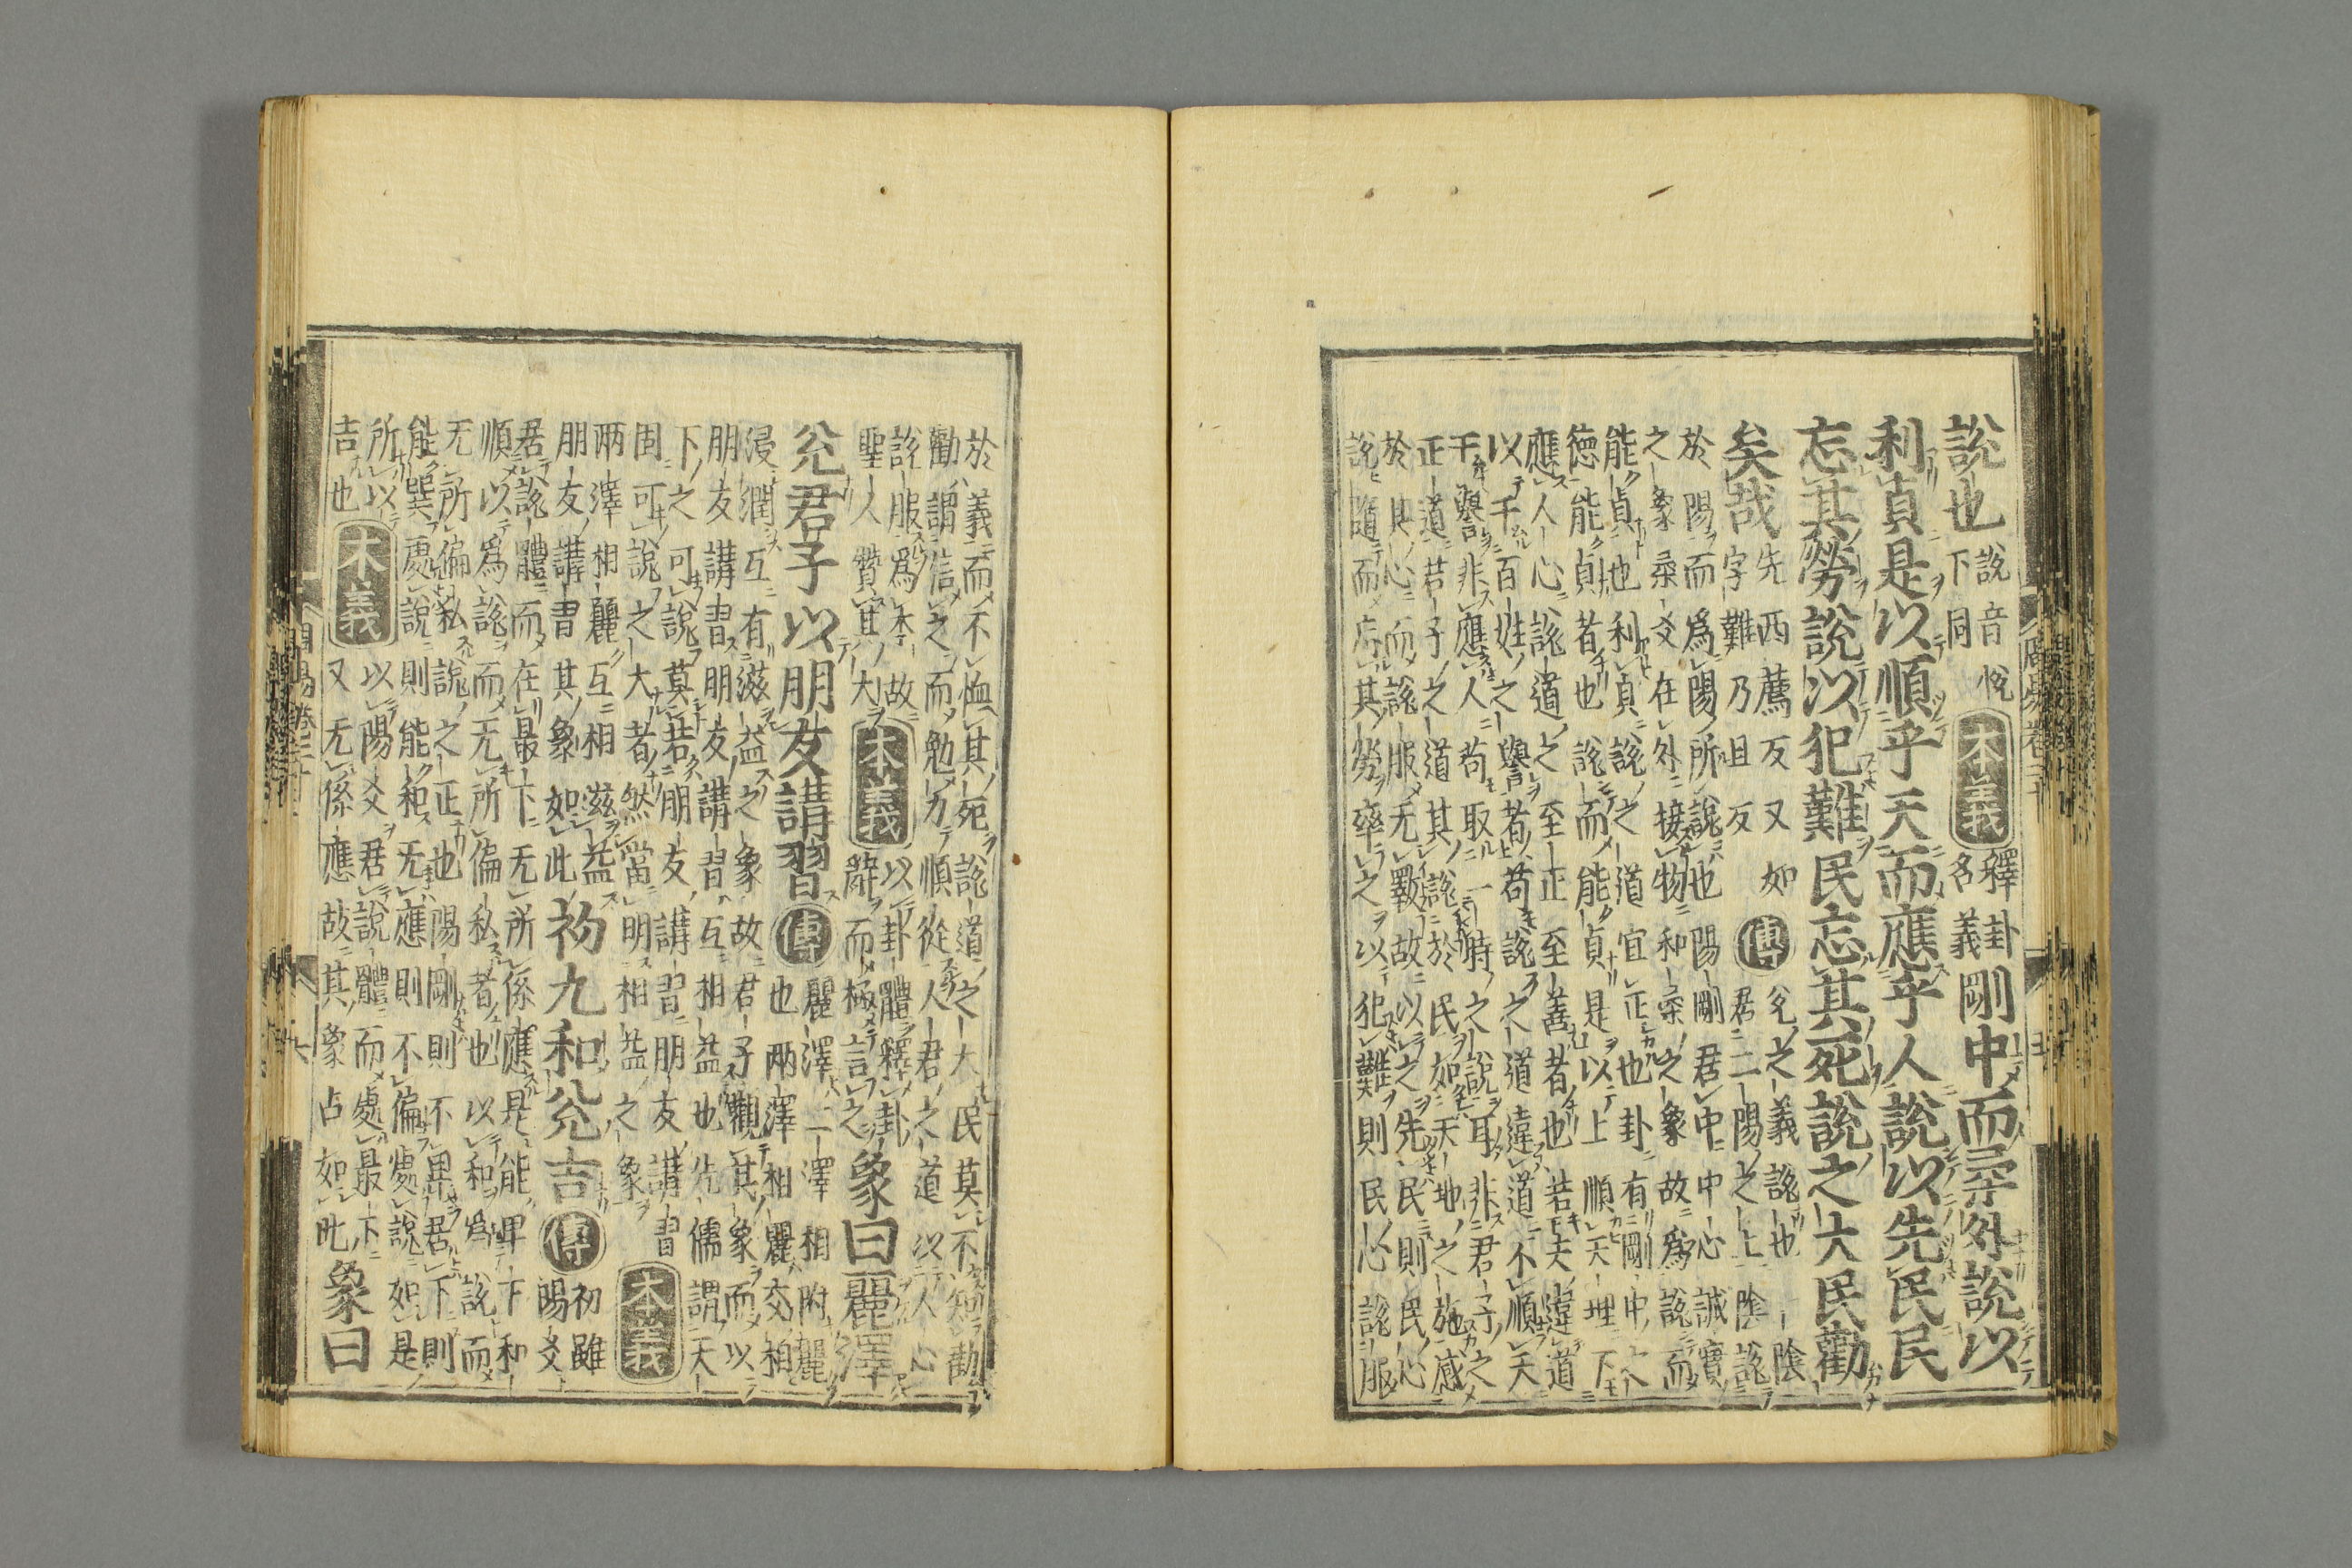 說也說音悅
下同本義釋卦
名義剛中而柔外說以
利貞是以順乎天而應乎人說以先民民
忘其勞說以犯難民忘其死說之大民勸
矣哉先西薦反又如
字難乃旦反傳兌之義說也一陰
君二陽之上陰說
於陽而爲陽所說也陽剛君中中心誠實
之象柔爻在外接物和柔之象故爲說而
能貞也利貞說之道宜正也卦有剛中之
德能貞者也說而能貞是以上順天理下
應人心說道之至正至善者也若夫違道
以干百姓之譽者苟說之道違道不順天
干譽非應人苟取一時之說耳非君子之
正道君子之道其說於民如天地之施感
於其心而說服无斁故以之先民則民心
說隨而忘其勞率之以犯難則民心說服
於義而不恤其死說道之大民莫不知勸
勸謂信之而勉力順從人君之道以人心
說服爲本故
聖人贊其大本義以卦體釋卦
辭而極言之象曰麗澤
兌君子以朋友講習傳麗澤二澤相附麗
也兩澤相麗交相
浸潤互有滋益之象故君子觀其象而以
朋友講習朋友講習互相益也先儒謂天
下之可說莫若朋友講習朋友講習
固可說之大者然當明相益之象本義
兩澤相麗互相滋益
朋友講習其象如此初九和兌吉傳初雖
陽爻
君說體而在最下无所係應是能卑下和
順以爲說而无所偏私者也以和爲說而
无所偏私說之正也陽剛則不卑居下則
能巽處說則能和无應則不偏處說如是
所以
吉也本義以陽爻君說體而處最下
又无係應故其象占如此象曰